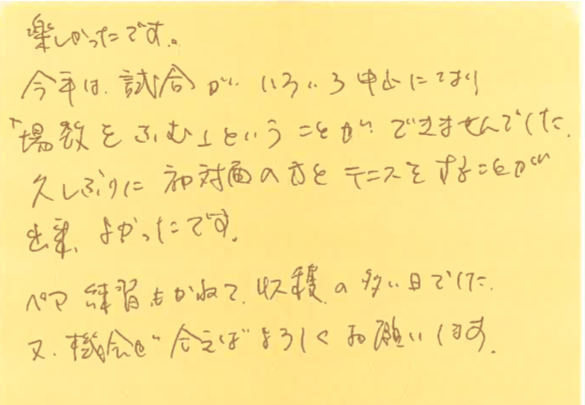 楽しかったです。
今年は、試合が いろいろ中止になり
「場数をふむ」ということが できませんでした。
久しぶりに 初対面の方と テニスをすることが
出来、よかったです。
ペア練習もかねて、収穫の多い日でした。
又、機会が合えば よろしくお願いします。